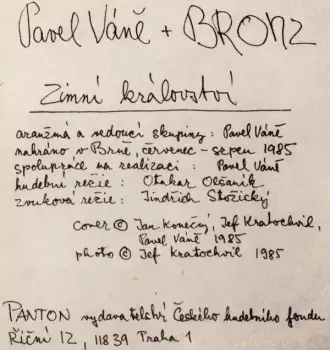 Pavel Váně + BRONZ
Zimní království
aranžmá a vedoucí skupiny: Pavel Váně
nahráno v Brně, červenec - srpen 1985
spolupráce na realizaci : Pavel Váně
hudební režie : Otakar Olšaník
zvuková režie : Jindřich Stožický
cover © Jan Konečný, Jef Kratochvil,
Pavel Váně 1985
photo © Jef Kratochvil 1985
PANTON vydavatelství Českého hudebního fondu
Říční 12, 118 39 Praha 1